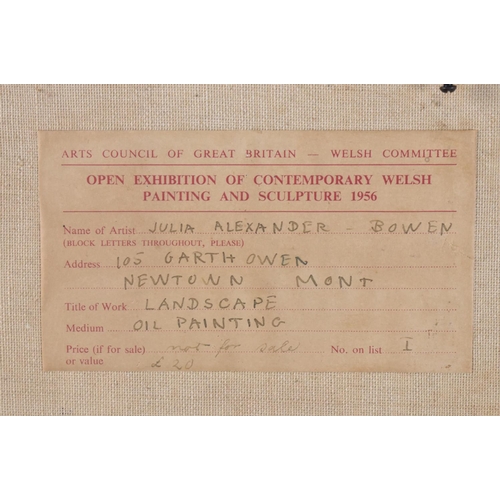 ARTS COUNCIL OF GREAT BRITAIN — WELSH COMMITTEE
OPEN EXHIBITION OF CONTEMPORARY WELSH
PAINTING AND SCULPTURE 1956
Name of Artist JULIA ALEXANDER - BOWEN
(BLOCK LETTERS THROUGHOUT, PLEASE)
Address 105 GARTH OWEN
NEWTOWN MONT
Title of Work LANDSCAPE
Medium OIL PAINTING
Price (if for sale) not for sale No. on list I
or value £20